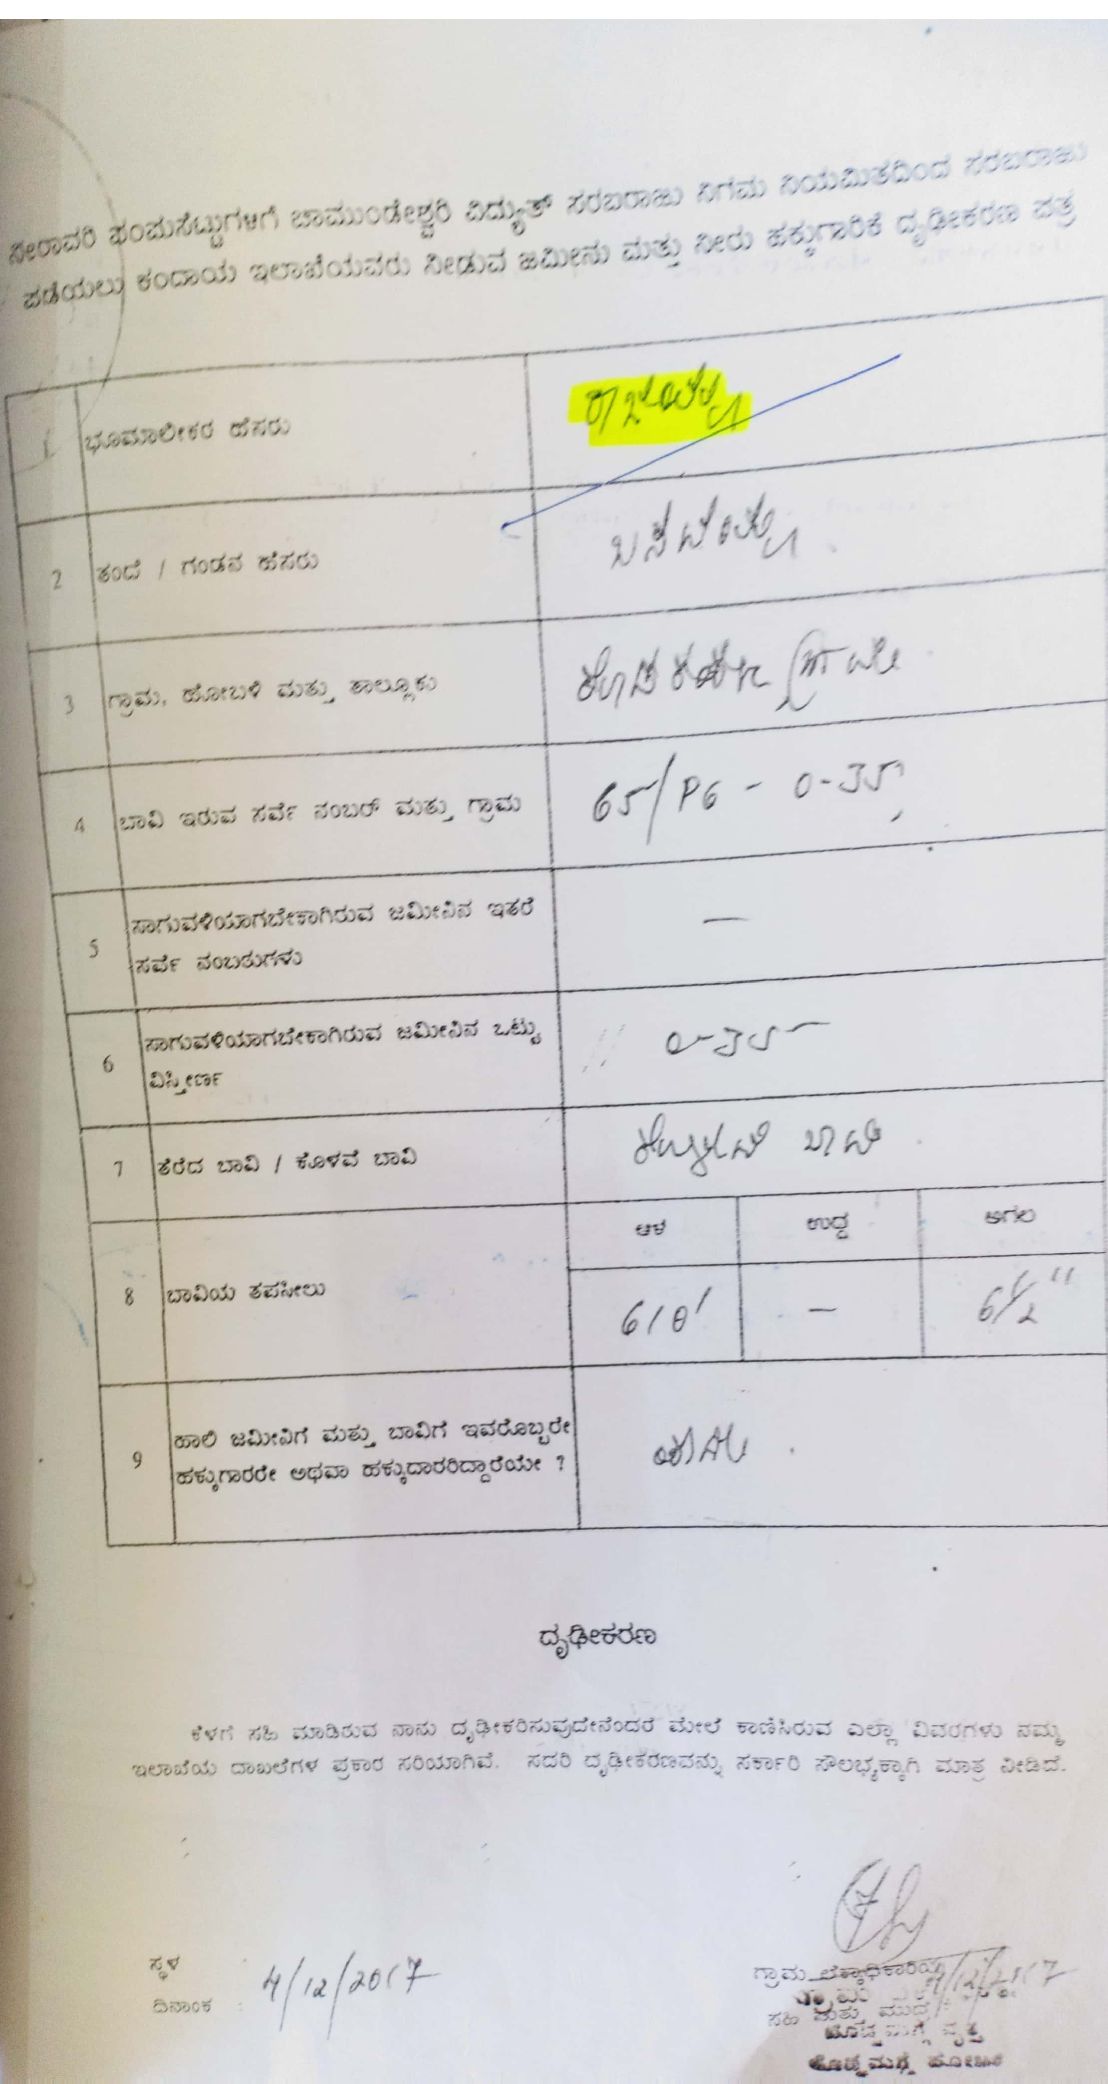 ನೀರಾವರಿ ಪಂಪುಸೆಟ್ಟುಗಳಿಗೆ ಚಾಮುಂಡೇಶ್ವರಿ ವಿದ್ಯುತ್ ಸರಬರಾಜು ನಿಗಮ ನಿಯಮಿತದಿಂದ ಸರಬರಾಜು
ಪಡೆಯಲು ಕಂದಾಯ ಇಲಾಖೆಯವರು ನೀಡುವ ಜಮೀನು ಮತ್ತು ನೀರು ಹಕ್ಕುಗಾರಿಕೆ ದೃಢೀಕರಣ ಪತ್ರ
1 ಭೂಮಾಲೀಕರ ಹೆಸರು
2 ತಂದೆ / ಗಂಡನ ಹೆಸರು
3 ಗ್ರಾಮ, ಹೋಬಳಿ ಮತ್ತು ತಾಲ್ಲೂಕು
4 ಬಾವಿ ಇರುವ ಸರ್ವೆ ನಂಬರ್ ಮತ್ತು ಗ್ರಾಮ 65/P6 - 0-35
5 ಸಾಗುವಳಿಯಾಗಬೇಕಾಗಿರುವ ಜಮೀನಿನ ಇತರೆ
ಸರ್ವೆ ನಂಬರುಗಳು —
6 ಸಾಗುವಳಿಯಾಗಬೇಕಾಗಿರುವ ಜಮೀನಿನ ಒಟ್ಟು
ವಿಸ್ತೀರ್ಣ 0-35
7 ತೆರೆದ ಬಾವಿ / ಕೊಳವೆ ಬಾವಿ ಕೊಳವೆ ಬಾವಿ
8 ಬಾವಿಯ ತಪಸೀಲು
ಆಳ ಉದ್ದ ಅಗಲ
610' — 6½"
9 ಹಾಲಿ ಜಮೀನಿಗೆ ಮತ್ತು ಬಾವಿಗೆ ಇವರೊಬ್ಬರೇ
ಹಕ್ಕುಗಾರರೇ ಅಥವಾ ಹಕ್ಕುದಾರರಿದ್ದಾರೆಯೇ ?
ದೃಢೀಕರಣ
ಕೆಳಗೆ ಸಹಿ ಮಾಡಿರುವ ನಾನು ದೃಢೀಕರಿಸುವುದೇನೆಂದರೆ ಮೇಲೆ ಕಾಣಿಸಿರುವ ಎಲ್ಲಾ ವಿವರಗಳು ನಮ್ಮ
ಇಲಾಖೆಯ ದಾಖಲೆಗಳ ಪ್ರಕಾರ ಸರಿಯಾಗಿವೆ. ಸದರಿ ದೃಢೀಕರಣವನ್ನು ಸರ್ಕಾರಿ ಸೌಲಭ್ಯಕ್ಕಾಗಿ ಮಾತ್ರ ನೀಡಿದೆ.
ಸ್ಥಳ
ದಿನಾಂಕ : 4/12/2017
ಗ್ರಾಮ ಲೆಕ್ಕಾಧಿಕಾರಿಯ
4/12/2017
ಸಹಿ ಮತ್ತು ಮುದ್ರೆ
ವೃತ್ತ
ಹೋಬಳಿ